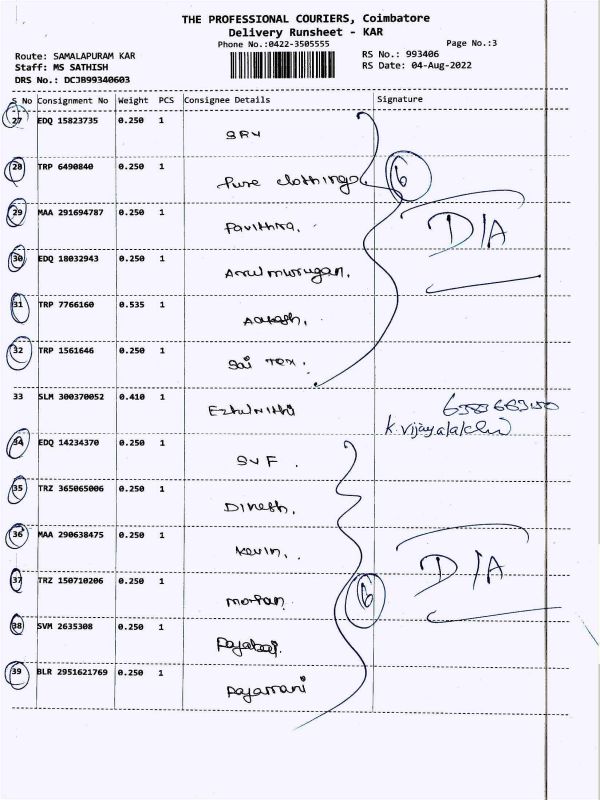 THE PROFESSIONAL COURIERS, Coimbatore
Delivery Runsheet - KAR
Phone No.:0422-3505555
Page No.:3
Route: SAMALAPURAM KAR
RS No.: 993406
Staff: MS SATHISH
RS Date: 04-Aug-2022
DRS No.: DCJB99340603
S No Consignment No Weight PCS Consignee Details Signature
27 EDQ 15823735 0.250 1
28 TRP 6490840 0.250 1 Pure clothings
6
29 MAA 291694787 0.250 1 Pavithra.
D/A
30 EDQ 18032943 0.250 1 Arulmurugan.
31 TRP 7766160 0.535 1 Aakash.
32 TRP 1561646 0.250 1 Sai Tex.
33 SLM 300370052 0.410 1 Ezhilnithi
K. Vijayalakshmi
34 EDQ 14234370 0.250 1 SVF.
35 TRZ 365065006 0.250 1 Dinesh.
36 MAA 290638475 0.250 1 Kevin.
D/A
37 TRZ 150710206 0.250 1 Mohan.
6
38 SVM 2635308 0.250 1
39 BLR 2951621769 0.250 1 Rajamani